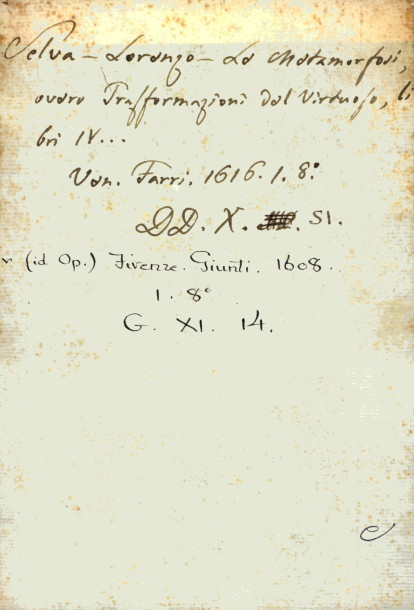 Selva - Lorenzo - Le Metamorfosi,
ovvero Trasformazioni del Virtuoso, li
bri IV...
Ven. Farri. 1616. 1. 8.°
DD. X. 51.
(id Op.) Firenze. Giunti. 1608.
1. 8°
G. XI. 14.